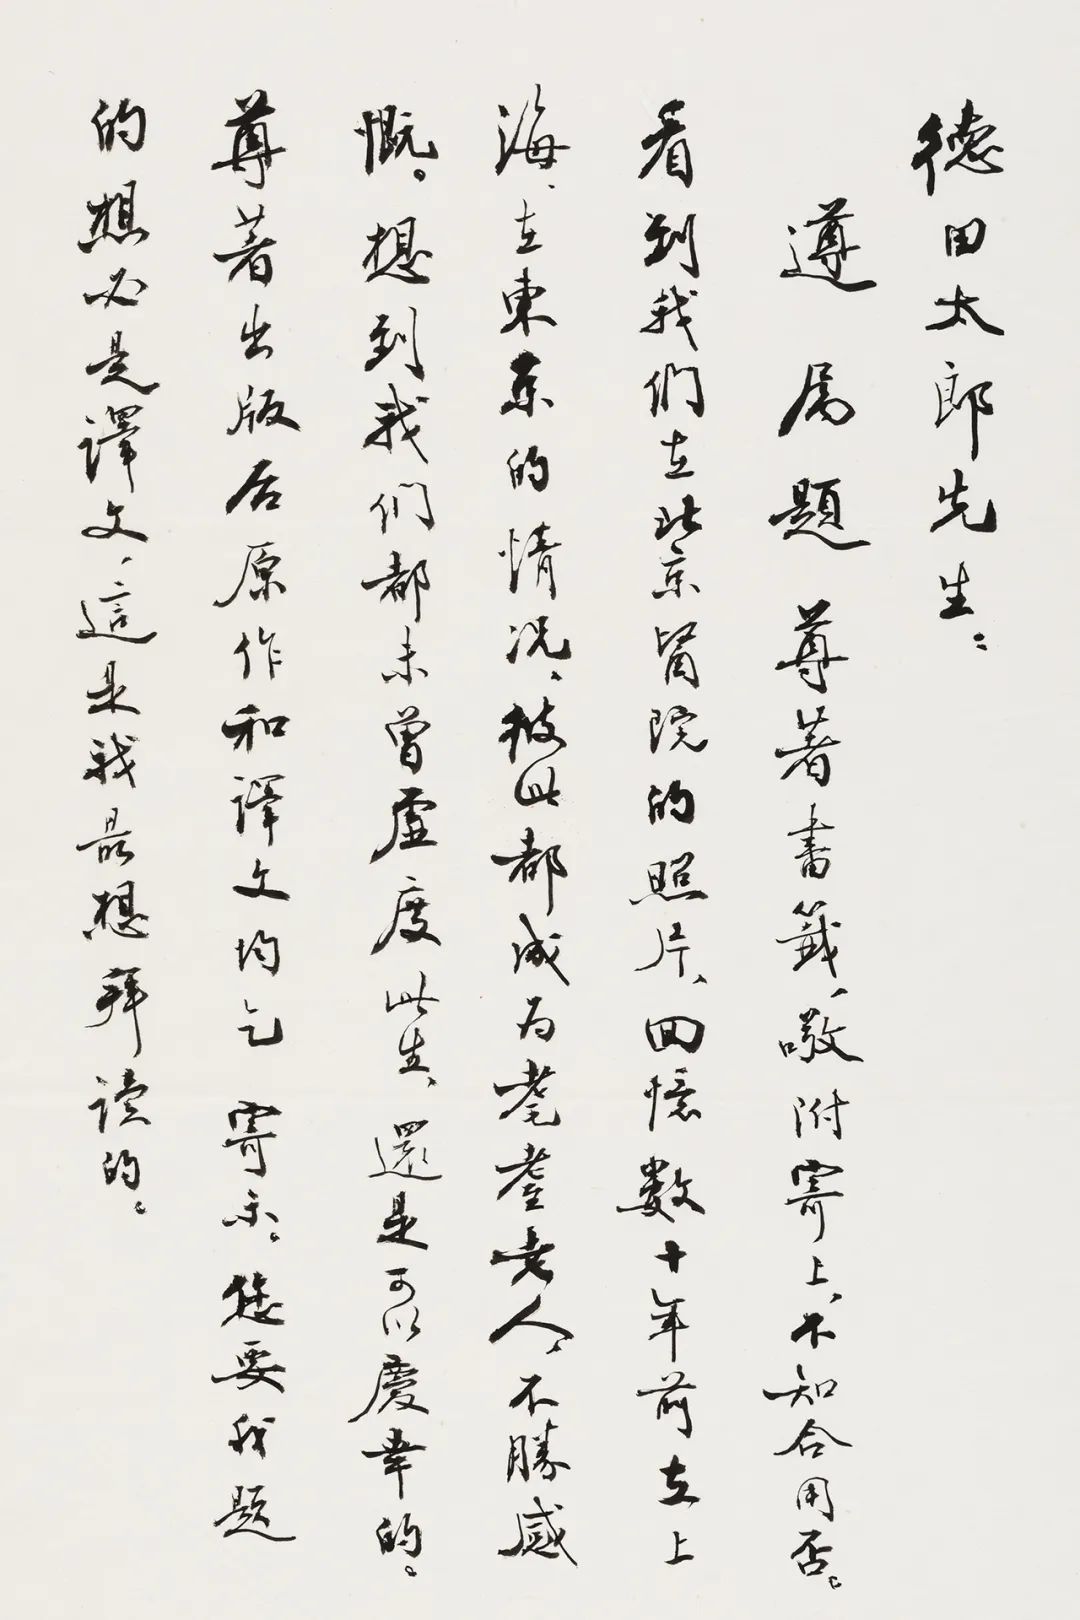 德田太郎先生：
遵属题 尊著書籤，敬附寄上，不知合用否。
看到我們在北京醫院的照片，回憶数十年前在上
海、在東京的情况，彼此都成为耄耋老人，不勝感
慨。想到我們都未曾虛度此生，還是可以慶幸的。
尊著出版后原作和譯文均乞 寄示。您要我題
的想必是譯文，這是我最想拜读的。